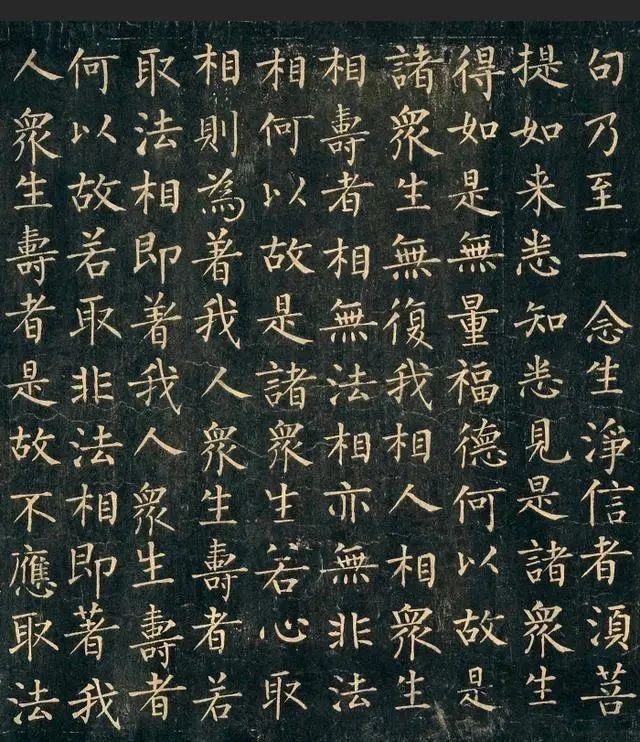 句乃至一念生淨信者須菩
提如来悉知悉見是諸衆生
得如是無量福德何以故是
諸衆生無復我相人相衆生
相壽者相無法相亦無非法
相何以故是諸衆生若心取
相則為著我人衆生壽者若
取法相即著我人衆生壽者
何以故若取非法相即著我
人衆生壽者是故不應取法